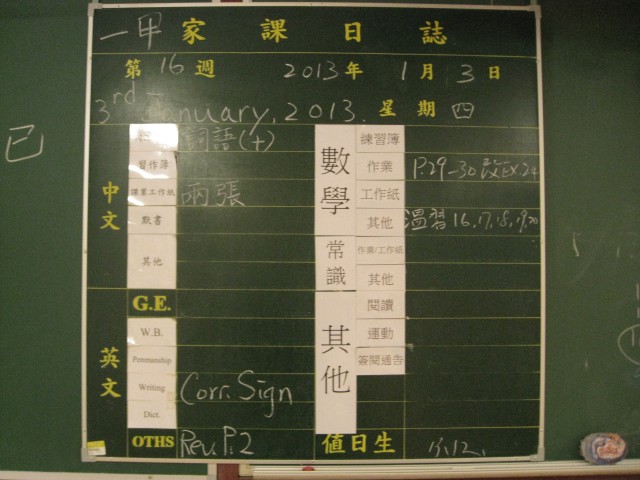 一甲家課日誌
第16週 2013年1月3日
3rd January, 2013. 星期四
已
中文
詞語(十)
習作簿
課業工作紙 兩張
默書
其他
G.E.
英文
W.B.
Penmanship
Writing Corr. Sign
Dict.
OTHS Rev. P.2
數學
練習簿
作業 P.29-30 改EX.24
工作紙
其他 溫習 16, 17, 18, 19, 20
常識
作業/工作紙
其他
其他
閱讀
運動
簽閱通告
值日生